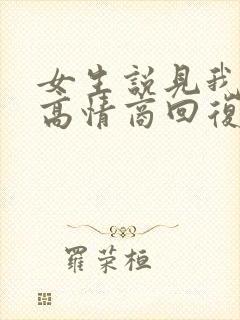 女生説見我
高情商回復
羅荣桓